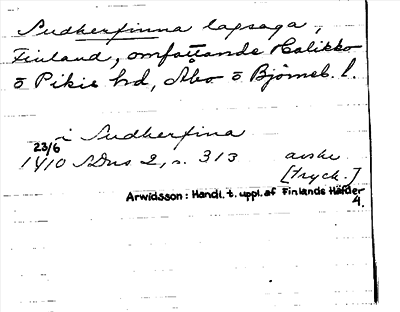 Sudherfinna lagsaga,
Finland, omfattande Halikko
o Pikis hd, Åbo o Björneb. l.
i Sudherfina
23/6
1410 SDns 2, s. 313 avskr.
[tryck.]
Arwidsson: Handl. t. uppl. af Finlands Häfder
4.